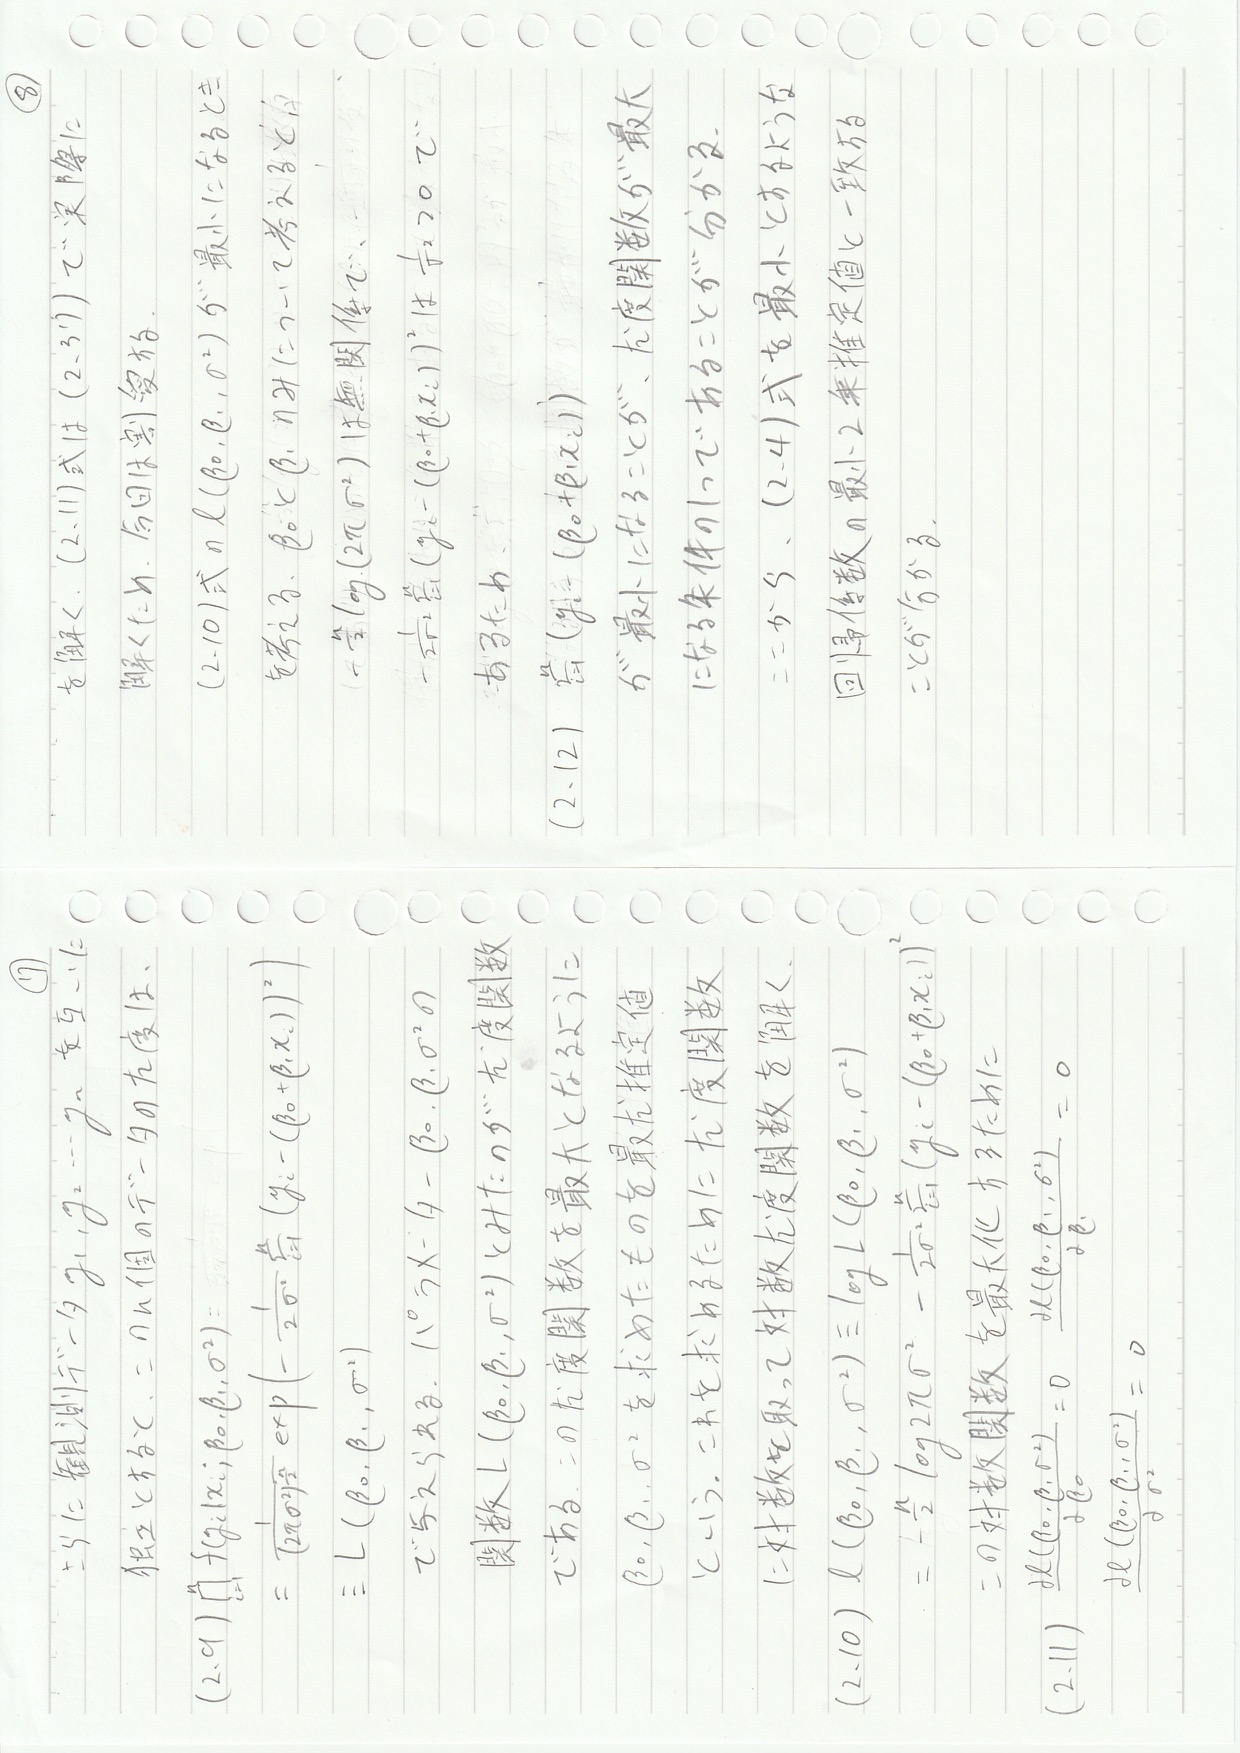 ⑦
さらに観測データ y₁, y₂ … yₙ を互いに
独立とすると、このn個のデータの尤度は、
(2.9) ∏ⁿᵢ₌₁ f(yᵢ|xᵢ; β₀, β₁, σ²) =
= 1/(2πσ²)^{n/2} exp(-1/2σ² Σⁿᵢ₌₁ (yᵢ-(β₀+β₁xᵢ))²)
≡ L(β₀, β₁, σ²)
で与えられる。パラメーターβ₀.β₁σ²の
関数L(β₀, β₁, σ²)とみたのが尤度関数
である。この尤度関数を最大となるように
β₀, β₁, σ²を求めたものを最尤推定値
という。これを求めるために尤度関数
に対数を取って対数尤度関数を解く。
(2.10) l(β₀, β₁, σ²) ≡ log L(β₀, β₁, σ²)
= -n/2 log2πσ² - 1/2σ² Σⁿᵢ₌₁ (yᵢ-(β₀+β₁xᵢ))²
この対数関数を最大化するために
(2.11) ∂l(β₀, β₁ σ²)/∂β₀ = 0 ∂l(β₀, β₁, σ²)/∂β₁ = 0
∂l(β₀, β₁, σ²)/∂σ² = 0
⑧
を解く。(2.11)式は(2.37)で実際に
解くため、今回は割愛する。
(2.10)式のl(β₀, β₁, σ²)が最小になるとき
を考える。β₀とβ₁のみについて考えると、
-n/2 log(2πσ²)は無関係で、
-1/2σ² Σⁿᵢ₌₁ (yᵢ-(β₀+β₁xᵢ))²は 1/σ²>0で
あるため、
(2.12) Σⁿᵢ₌₁ (yᵢ-(β₀+β₁xᵢ))
が最小になることが、尤度関数が最大
になる条件の1つであることが分かる。
ここから、(2.4)式を最小とするような
回帰係数の最小2乗推定値と一致する
ことが分かる。